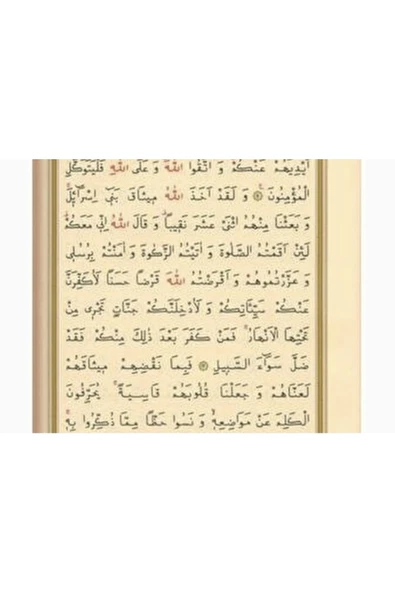 اَيْدِيَهُمْ عَنْكُمْ وَ اتَّقُوا اللّٰهَ وَ عَلَى اللّٰهِ فَلْيَتَوَكَّلِ
الْمُؤْمِنُونَ ۞ وَ لَقَدْ اَخَذَ اللّٰهُ مِيثَاقَ بَنِى اِسْرَآئِيلَ
وَ بَعَثْنَا مِنْهُمُ اثْنَىْ عَشَرَ نَقِيبًا وَ قَالَ اللّٰهُ اِنِّى مَعَكُمْ
لَئِنْ اَقَمْتُمُ الصَّلٰوةَ وَ اٰتَيْتُمُ الزَّكٰوةَ وَ اٰمَنْتُمْ بِرُسُلِى
وَ عَزَّرْتُمُوهُمْ وَ اَقْرَضْتُمُ اللّٰهَ قَرْضًا حَسَنًا لَاُكَفِّرَنَّ
عَنْكُمْ سَيِّئَاتِكُمْ وَ لَاُدْخِلَنَّكُمْ جَنَّاتٍ تَجْرِى مِنْ
تَحْتِهَا الْاَنْهَارُ فَمَنْ كَفَرَ بَعْدَ ذٰلِكَ مِنْكُمْ فَقَدْ
ضَلَّ سَوَآءَ السَّبِيلِ ۞ فَبِمَا نَقْضِهِمْ مِيثَاقَهُمْ
لَعَنَّاهُمْ وَ جَعَلْنَا قُلُوبَهُمْ قَاسِيَةً يُحَرِّفُونَ
الْكَلِمَ عَنْ مَوَاضِعِهِ وَ نَسُوا حَظًّا مِمَّا ذُكِّرُوا بِهِ